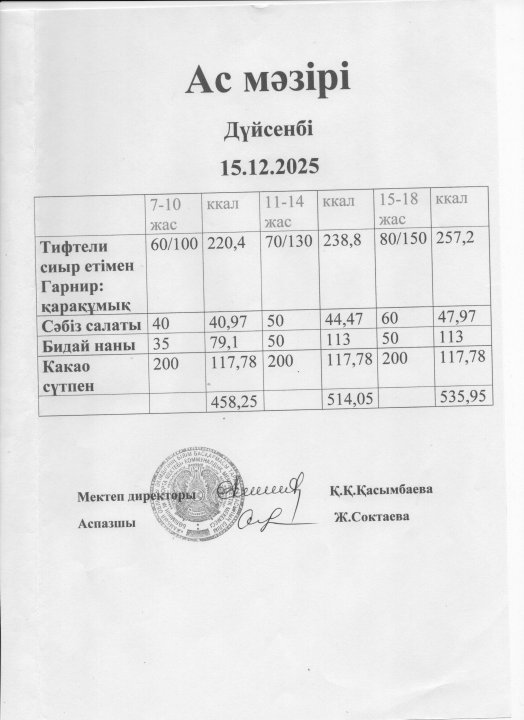 Ас мәзірі
Дүйсенбі
15.12.2025
7-10 жас ккал 11-14 жас ккал 15-18 жас ккал
Тифтели сиыр етімен Гарнир: қарақұмық 60/100 220,4 70/130 238,8 80/150 257,2
Сәбіз салаты 40 40,97 50 44,47 60 47,97
Бидай наны 35 79,1 50 113 50 113
Какао сүтпен 200 117,78 200 117,78 200 117,78
458,25 514,05 535,95
Мектеп директоры Қ.Қ.Қасымбаева
Аспазшы Ж.Соктаева